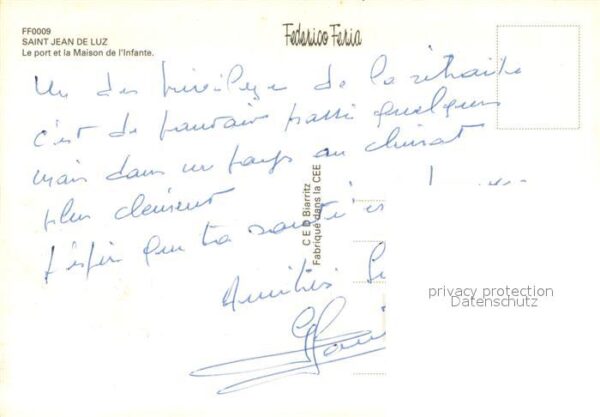 FF0009
SAINT JEAN DE LUZ
Le port et la Maison de l'Infante.
Federico Feria
Un des privilège de la retraite
c'est de pouvoir passé quelques
mois dans un pays au climat
plus clément
J'espère que ta santé
Amitiés
C E D Biarritz
Fabriqué dans la CEE
privacy protection
Datenschutz